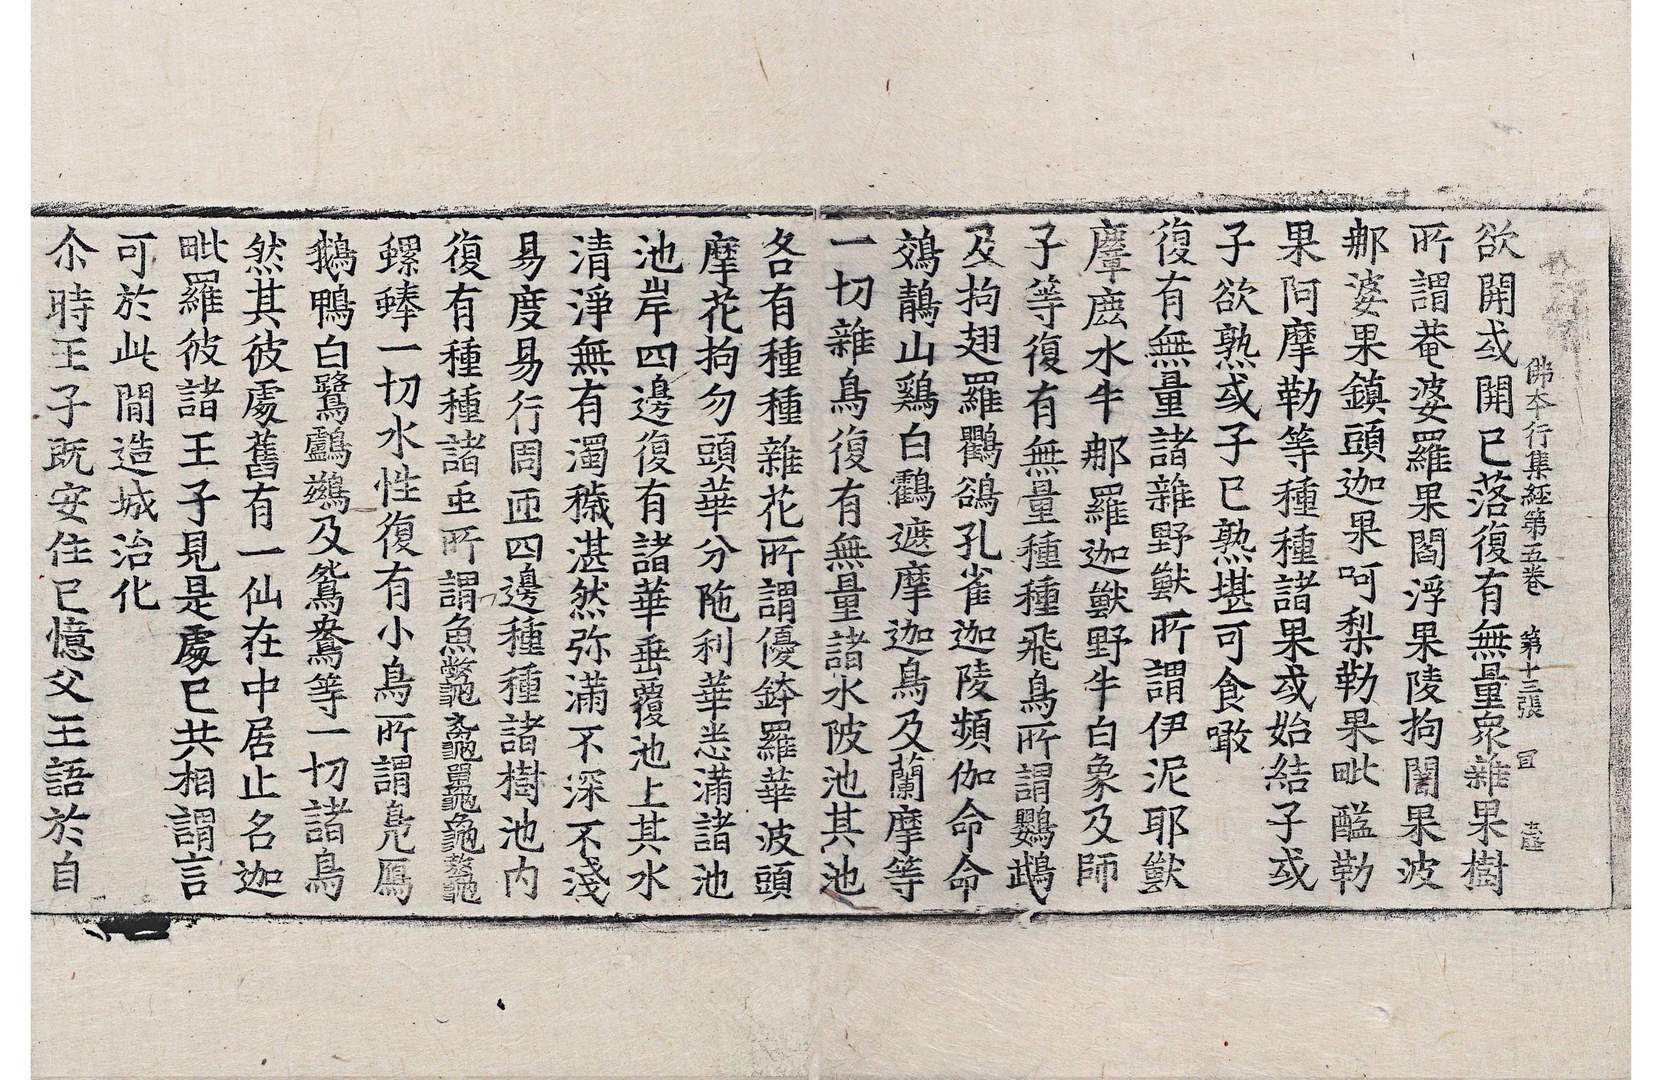 佛本行集經第五卷 第十三張 冝
欲開或開已落復有無量衆雜果樹
所謂菴婆羅果閻浮果陵拘闍果波
那婆果鎮頭迦果呵梨勒果毗醯勒
果阿摩勒等種種諸果或始結子或
子欲熟或子已熟堪可食噉
復有無量諸雜野獸所謂伊泥耶獸
麞鹿水牛那羅迦獸野牛白象及師
子等復有無量種種飛鳥所謂鸚鵡
及拘翅羅鸜鵒孔雀迦陵頻伽命命
鵁鶄山鷄白鸖遮摩迦鳥及蘭摩等
一切雜鳥復有無量諸水陂池其池
各有種種雜花所謂優鉢羅華波頭
摩花拘勿頭華分陁利華悉滿諸池
池岸四邊復有諸華垂覆池上其水
清淨無有濁穢湛然弥滿不深不淺
易度易行周匝四邊種種諸樹池内
復有種種諸虫所謂魚鼈
螺蜯一切水性復有小鳥所謂鳧鴈
鵝鴨白鷺鸕鷀及鴛鴦等一切諸鳥
然其彼處舊有一仙在中居止名迦
毗羅彼諸王子見是處已共相謂言
可於此間造城治化
尒時王子既安住已憶父王語於自